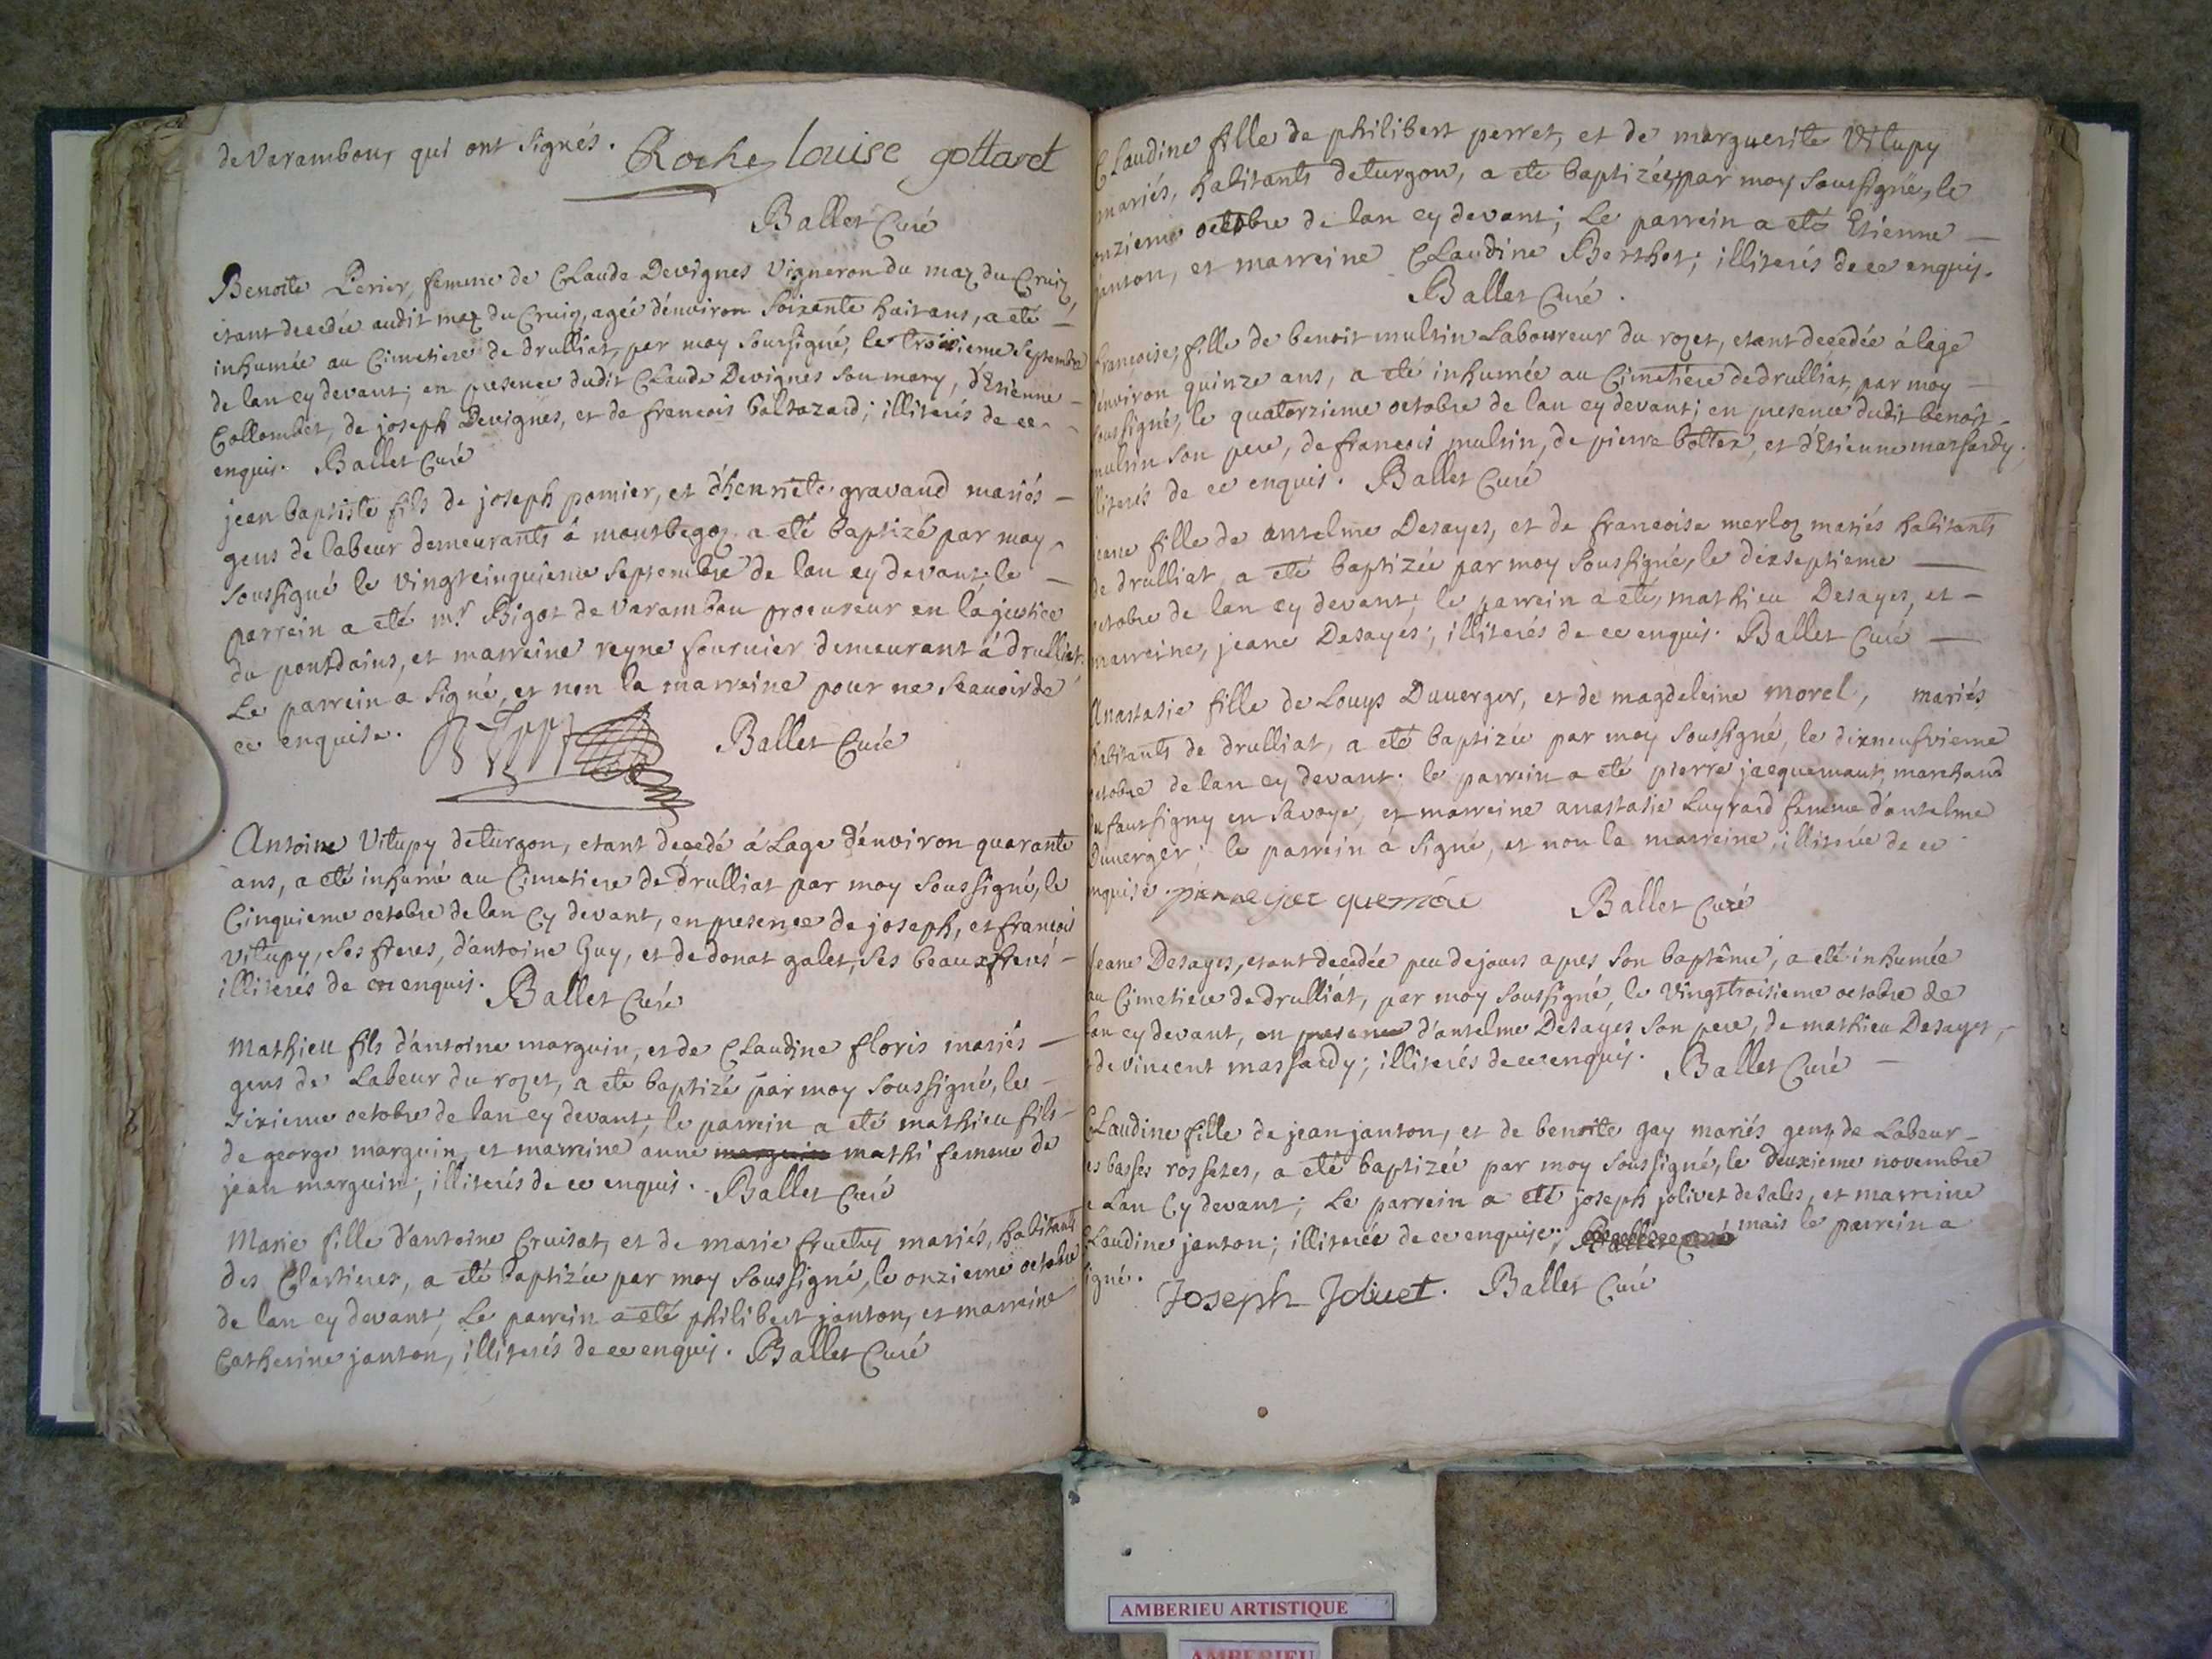 de Varambon, qui ont signés. Roche louise gottaret
Ballet Curé
Benoite Perier, femme de Claude Devignes Vigneron du maz du Cruiz,
etant decedée audit maz du Cruiz, agée d'environ soixante huit ans, a eté
inhumée au Cimetiere de drulliat, par moy soussigné, le troisieme septembre
de lan cy devant; en presence dudit Claude Devignes son mary, d'Etienne
Collombet, de joseph Devignes, et de francois baltazard; illiterés de ce
enquis. Ballet Curé
jean baptiste fils de joseph pomier, et d'henriete gravaud mariés
gens de labeur demeurants à montbegoz a eté baptizé par moy
soussigné le vingtcinquieme septembre de lan cy devant, le
parrein a eté mr. Bigot de Varambon procureur en la justice
du pontdains, et marreine reyne fournier demeurant à drulliat.
Le parrein a signé, et non la marreine pour ne scavoir de
ce enquise. Ballet Curé
Antoine Vitupy de turgon, etant decedé à Lage d'environ quarante
ans, a eté inhumé au Cimetiere de drulliat par moy soussigné, le
Cinquieme octobre de lan Cy devant, en presence de joseph, et francois
vitupy, ses freres, d'antoine Guy, et de donat galet, ses beauxfreres
illiterés de ce enquis. Ballet Curé
Mathieu fils d'antoine marguin, et de Claudine floris mariés
gens de Labeur du rozet, a ete baptizé par moy soussigné, le
sixieme octobre de lan cy devant; le parrein a eté mathieu fils
de george marguin, et marreine anne marguin mathi femme de
jean marguin; illiterés de ce enquis. Ballet Curé
Marie fille d'antoine Cruisat, et de marie fructuy mariés, habitants
des Clartieres, a eté baptizée par moy soussigné, le onzieme octobre
de lan cy devant; Le parrein a eté philibert janton, et marreine
Catherine janton, illiterés de ce enquis. Ballet Curé
Claudine fille de philibert perret, et de marguerite Vitupy
mariés, habitants de turgon, a ete baptizée par moy soussigné, le
onzieme octobre de lan cy devant; Le parrein a eté Etienne
janton, et marreine Claudine Berthet; illiterés de ce enquis.
Ballet Curé.
francoise, fille de benoit mulsin Laboureur du rozet, etant decedée à lage
d'environ quinze ans, a eté inhumée au Cimetiere de drulliat, par moy
soussigné, le quatorzieme octobre de lan cy devant; en presence dudit benoit
mulsin son pere, de francois mulsin, de pierre bottex, et d'Etienne massardy.
illiterés de ce enquis. Ballet Curé
jeane fille de antelme Desayes, et de francoise merloz mariés habitants
de drulliat, a eté baptizée par moy soussigné, le dixseptieme
octobre de lan cy devant; le parrein a eté, mathieu Desayes, et
marreine, jeane Desayes; illiterés de ce enquis. Ballet Curé
Anastasie fille de Louys Duverger, et de magdeleine morel, mariés
habitants de drulliat, a eté baptizée par moy soussigné, le dixneufvieme
octobre de lan cy devant; le parrein a eté pierre jacquemaut, marchand
du faussigny en Savoye, et marreine anastasie Luyrard femme d'antelme
Duverger; le parrein à signé, et non la marreine, illiterée de ce
enquise. pierre jac quemau Ballet Curé
jeane Desayes, etant decedée peu de jours apres son baptême, a eté inhumée
au Cimetiere de drulliat, par moy soussigné, le Vingttroisieme octobre de
lan cy devant, en presence d'antelme Desayes son pere, de mathieu Desayes,
et de vincent massardy; illiterés de ce enquis. Ballet Curé
Claudine fille de jean janton, et de benoite gay mariés gens de Labeur
es basses rossetes, a eté baptizée par moy soussigné, le deuxieme novembre
de Lan Cy devant; Le parrein a eté joseph jolivet de sales, et marreine
Claudine janton; illiterée de ce enquise; Ballet Curé mais le parrein a
signé. Joseph Jolivet. Ballet Curé
AMBERIEU ARTISTIQUE
AMBERIEU